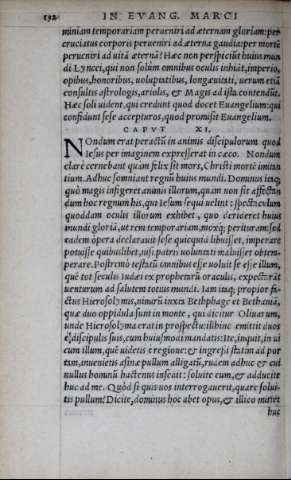 192 IN EVANG. MARCI
miniam temporariam perueniri ad æternam gloriam: per
cruciatus corporis perueniri ad æterna gaudia: per mortē
perueniri ad uitā æternā! Hæc non perspiciūt huius mun
di Lyncei, qui non solum omnibus oculis inhiāt, imperio,
opibus, honoribus, uoluptatibus, longæuitati, uerum etiā
consultis astrologis, ariolis, & Magis ad ista contendūt.
Hæc soli uident, qui credunt quod docet Euangelium: qui
confidunt sese accepturos, quod promisit Euangelium.
CAPVT XI.
NOndum erat peractū in animis discipulorum quod
Iesus per imaginem expresserat in cæco. Nondum
clare cernebant quàm felix sit mors, Christi mortē imitan
tium. Adhuc somniant regnū huius mundi. Dominus itaq;
quò magis infigeret animis illorum, quàm non sit affectan
dum hoc regnum his, qui Iesum sequi uelint: spectaculum
quoddam oculis illorum exhibet, quo derideret huius
mundi gloriā, ut rem temporariam, moxq; perituram: sed
eadem opera declarauit sese quicquid libuisset, imperare
potuisse quibuslibet, nisi patris uoluntati maluisset obtem-
perare. Postremò testatū omnibus esse uoluit se esse illum,
quē tot seculis Iudæi ex prophetarū oraculis, expectārāt
uenturum ad salutem totius mundi. Iam itaq; propior fa-
ctus Hierosolymis, nimirū iuxta Bethphage et Bethaniā,
quæ duo oppidula sunt in monte, qui dicitur Oliuarum,
unde Hierosolyma erat in prospectu: illhinc emittit duos
è discipulis suis, cum huiusmodi mandatis: Ite, inquit, in ui
cum illum, quē uidetis è regione: & ingressi statim ad por
tam, inuenietis asinæ pullum alligatū, rudem adhuc & cui
nullus hominū hactenus insedit: soluite eum, & adducite
huc ad me. Quòd si quis uos interrogauerit, quare solui-
tis pullum? Dicite, dominus hoc abet opus, & illico mittet
huc